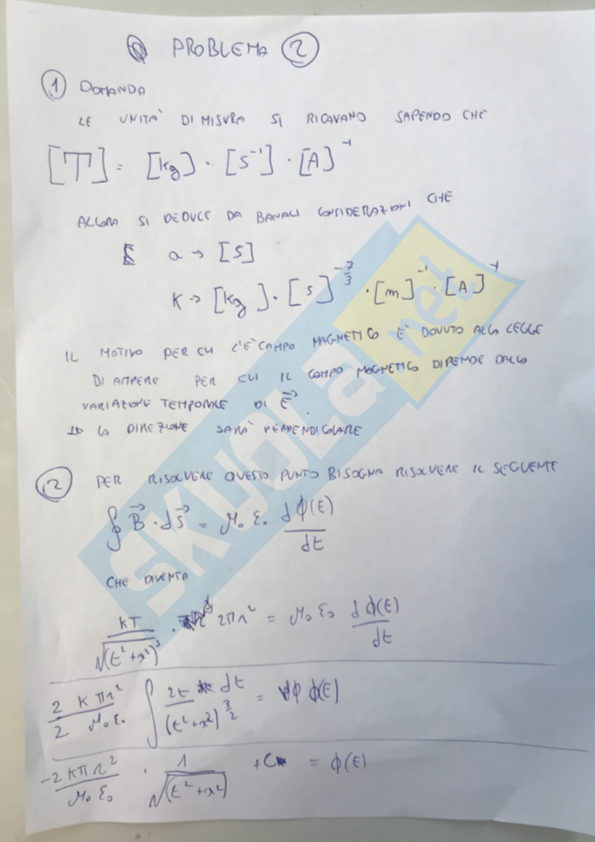 PROBLEMA 2
1 DOMANDA
LE UNITA' DI MISURA SI RICAVANO SAPENDO CHE
[T] = [kg] · [s⁻¹] · [A]⁻¹
ALLORA SI DEDUCE DA BANALI CONSIDERAZIONI CHE
a → [S]
K → [kg] · [s]^(-7/3) · [m]⁻¹ · [A]⁻¹
IL MOTIVO PER CUI C'È CAMPO MAGNETICO E' DOVUTO ALLA LEGGE
DI AMPERE PER CUI IL CAMPO MAGNETICO DIPENDE DALLA
VARIAZIONE TEMPORALE DI E⃗.
LA DIREZIONE SARÀ PERPENDICOLARE
2 PER RISOLVERE QUESTO PUNTO BISOGNA RISOLVERE IL SEGUENTE
∮ B⃗ · dS⃗ = μ₀ ε₀ dϕ(E)/dt
CHE DIVENTA
KT/√(t²+x²)³ · 2πr² = μ₀ ε₀ dϕ(E)/dt
2/2 Kπr²/μ₀ε₀ ∫ 2t dt/(t²+x²)^(3/2) = ϕ(E)
-2Kπr²/μ₀ε₀ · 1/√(t²+x²) + C = ϕ(E)
SKUOLA.net